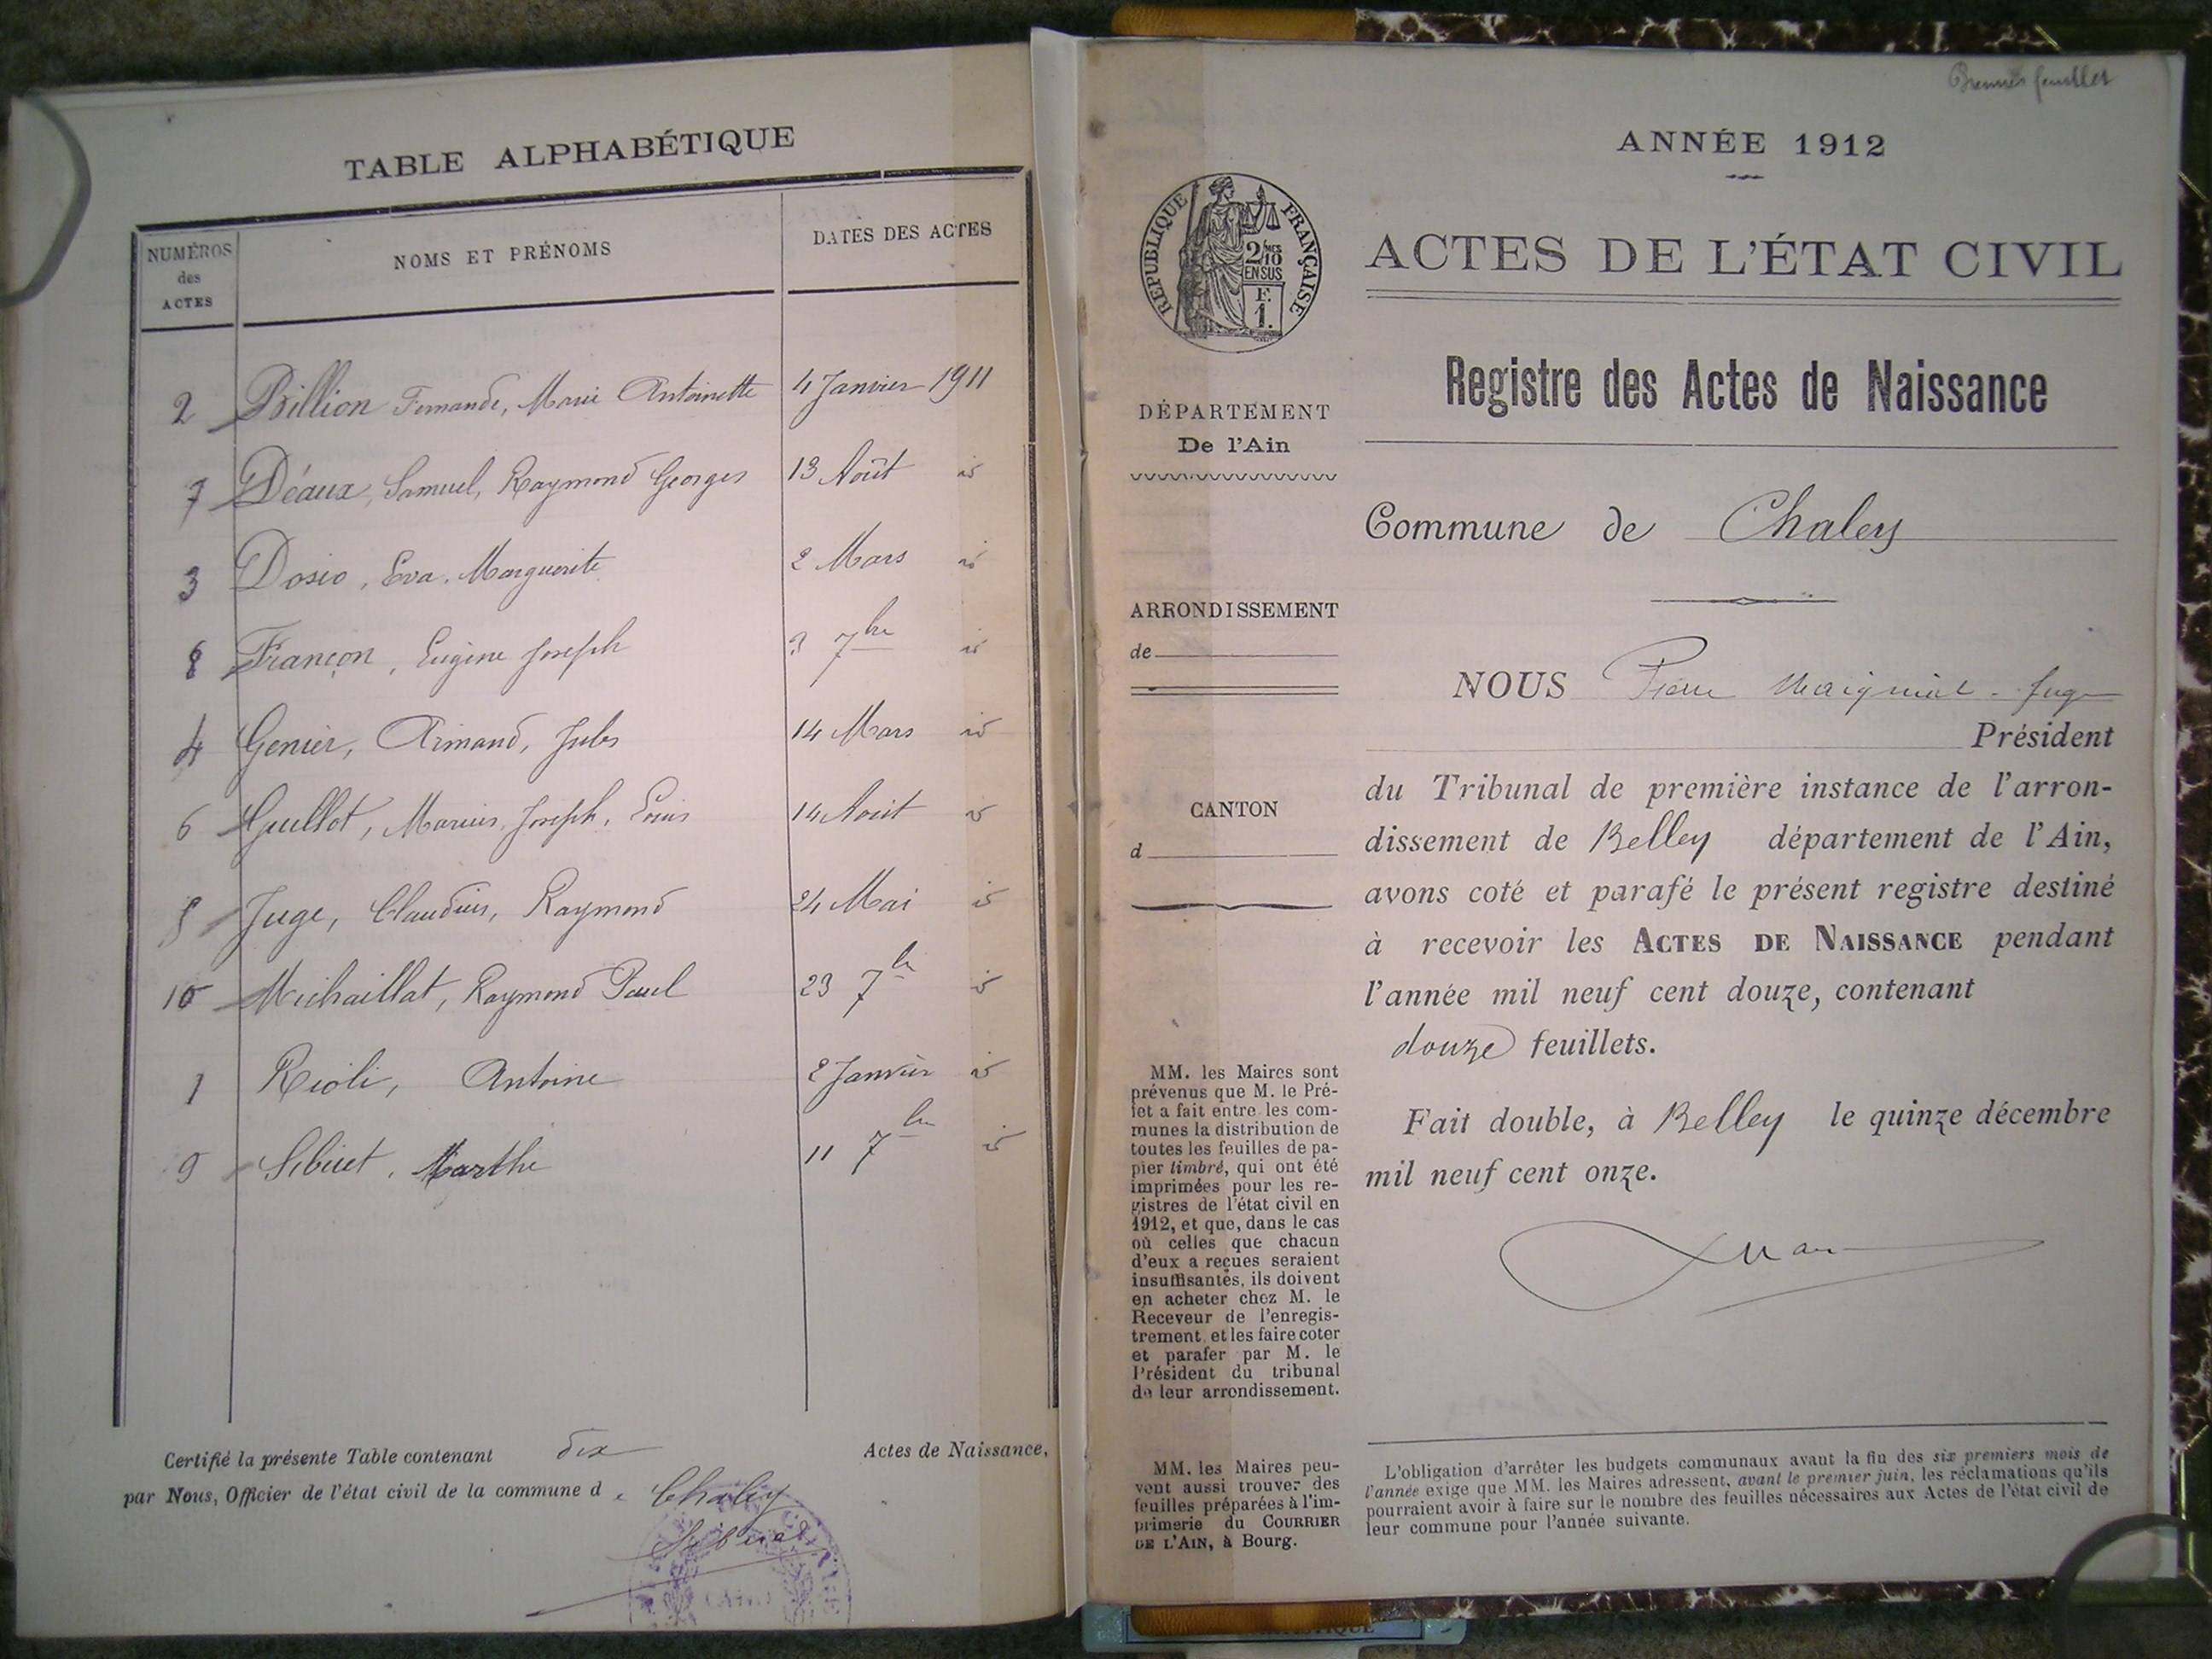 TABLE ALPHABÉTIQUE
NUMÉROS
des
ACTES
NOMS ET PRÉNOMS
DATES DES ACTES
2 Billion Fernande, Marie Antoinette 4 Janvier 1911
7 Déaux, Samuel, Raymond Georges 13 Août id
3 Dosio, Eva, Marguerite 2 Mars id
8 Françon, Eugène Joseph 3 7bre id
4 Genier, Armand, Jules 14 Mars id
6 Guillot, Marius, Joseph, Louis 14 Août id
5 Juge, Claudius, Raymond 24 Mai id
10 Michaillat, Raymond Paul 23 7bre id
1 Rioli, Antoine 2 Janvier id
9 Sibuet, Marthe 11 7bre id
Certifié la présente Table contenant dix Actes de Naissance,
par Nous, Officier de l'état civil de la commune de Chaley
Sibuet
Premier feuillet
ANNÉE 1912
RÉPUBLIQUE FRANÇAISE
2/10MES
EN SUS
F.
1.
ACTES DE L'ÉTAT CIVIL
Registre des Actes de Naissance
DÉPARTEMENT
De l'Ain
Commune de Chaley
ARRONDISSEMENT
de
CANTON
d
NOUS Pierre Juge
Président
du Tribunal de première instance de l'arron-
dissement de Belley département de l'Ain,
avons coté et parafé le présent registre destiné
à recevoir les ACTES DE NAISSANCE pendant
l'année mil neuf cent douze, contenant
douze feuillets.
Fait double, à Belley le quinze décembre
mil neuf cent onze.
MM. les Maires sont
prévenus que M. le Pré-
fet a fait entre les com-
munes la distribution de
toutes les feuilles de pa-
pier timbré, qui ont été
imprimées pour les re-
gistres de l'état civil en
1912, et que, dans le cas
où celles que chacun
d'eux a reçues seraient
insuffisantes, ils doivent
en acheter chez M. le
Receveur de l'enregis-
trement, et les faire coter
et parafer par M. le
Président du tribunal
de leur arrondissement.
MM. les Maires peu-
vent aussi trouver des
feuilles préparées à l'im-
primerie du COURRIER
DE L'AIN, à Bourg.
L'obligation d'arrêter les budgets communaux avant la fin des six premiers mois de
l'année exige que MM. les Maires adressent, avant le premier juin, les réclamations qu'ils
pourraient avoir à faire sur le nombre des feuilles nécessaires aux Actes de l'état civil de
leur commune pour l'année suivante.